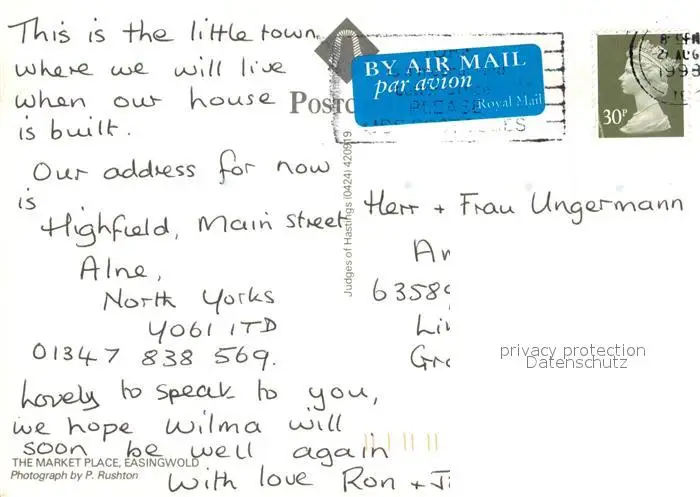 This is the little town
where we will live
when our house
is built.
Our address for now
is
Highfield, Main Street
Alne,
North Yorks
YO61 1TD
01347 838 569.
Lovely to speak to you,
we hope Wilma will
soon be well again
With love Ron +
THE MARKET PLACE, EASINGWOLD
Photograph by P. Rushton
Postc
Judges of Hastings (0424) 420919
BY AIR MAIL
par avion
Royal Mail
PLEASE
30P
1998
Herr + Frau Ungermann
63589
Li
Gr
privacy protection
Datenschutz